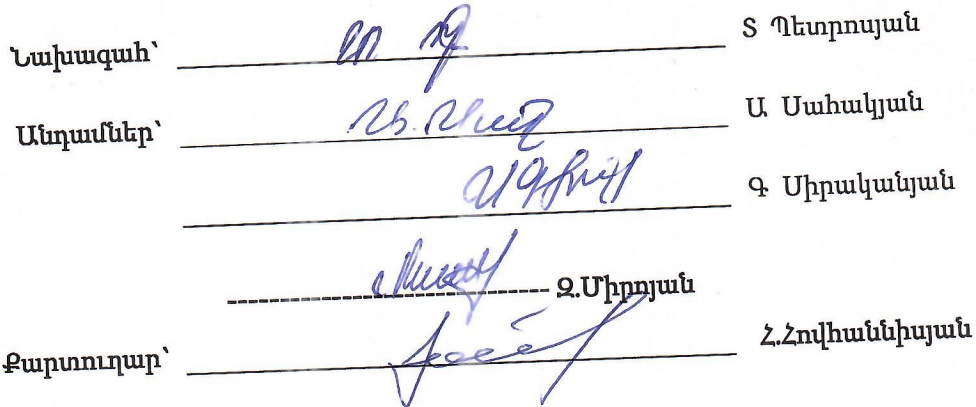 Նախագահ՝ Տ Պետրոսյան
Անդամներ՝ Ա Սահակյան
Գ Սիրականյան
Զ.Միրոյան
Քարտուղար՝ Հ.Հովհաննիսյան